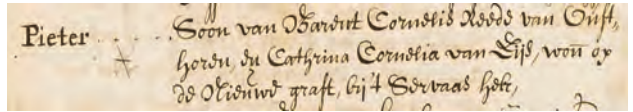 Pieter . . . . . Soon van Barent Cornelis Reede van Outs,,
horen, en Cathrina Cornelia van Lijs, won op
de Nieuwe graft, bij 't Servaas hek,